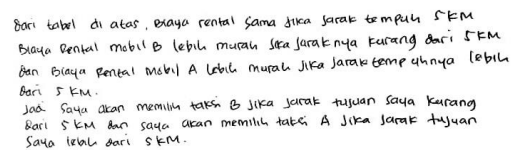 Dari tabel di atas, Biaya rental sama jika jarak tempuh 5KM
Biaya Rental mobil B lebih murah jika jaraknya kurang dari 5KM
Dan Biaya Rental Mobil A lebih murah jika Jarak tempuhnya lebih
Dari 5 KM.
Jadi saya akan memilih taksi B jika jarak tujuan saya kurang
Dari 5 KM dan saya akan memilih taksi A Jika Jarak tujuan
Saya lebih dari 5KM.